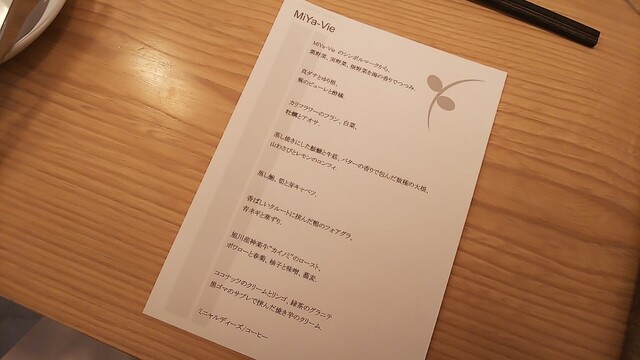 MiYa-Vie
MiYa-Vie のシンボルマークから、
葉野菜、実野菜、根野菜を海の香りでつつみ、
真ダチとゆり根、
蕪のピューレと酢橘
カリフラワーのフラン、白菜、
牡蠣とアオサ、
蒸し焼きにした鮟鱇と牛筋、バターの香りで包んだ数種の大根、
山わさびとレモンのコンフィ、
蒸し鮑、筍と芽キャベツ、
香ばしいクルートに挟んだ鴨のフォアグラ、
青ネギと寒ずり、
旭川産神楽牛"カイノミ"のロースト、
ポワローと春菊、柚子と味噌、蕎麦、
ココナッツのクリームとリンゴ、緑茶のグラニテ
黒ゴマのサブレで挟んだ焼き芋のクリーム、
ミニャルディーズ/コーヒー